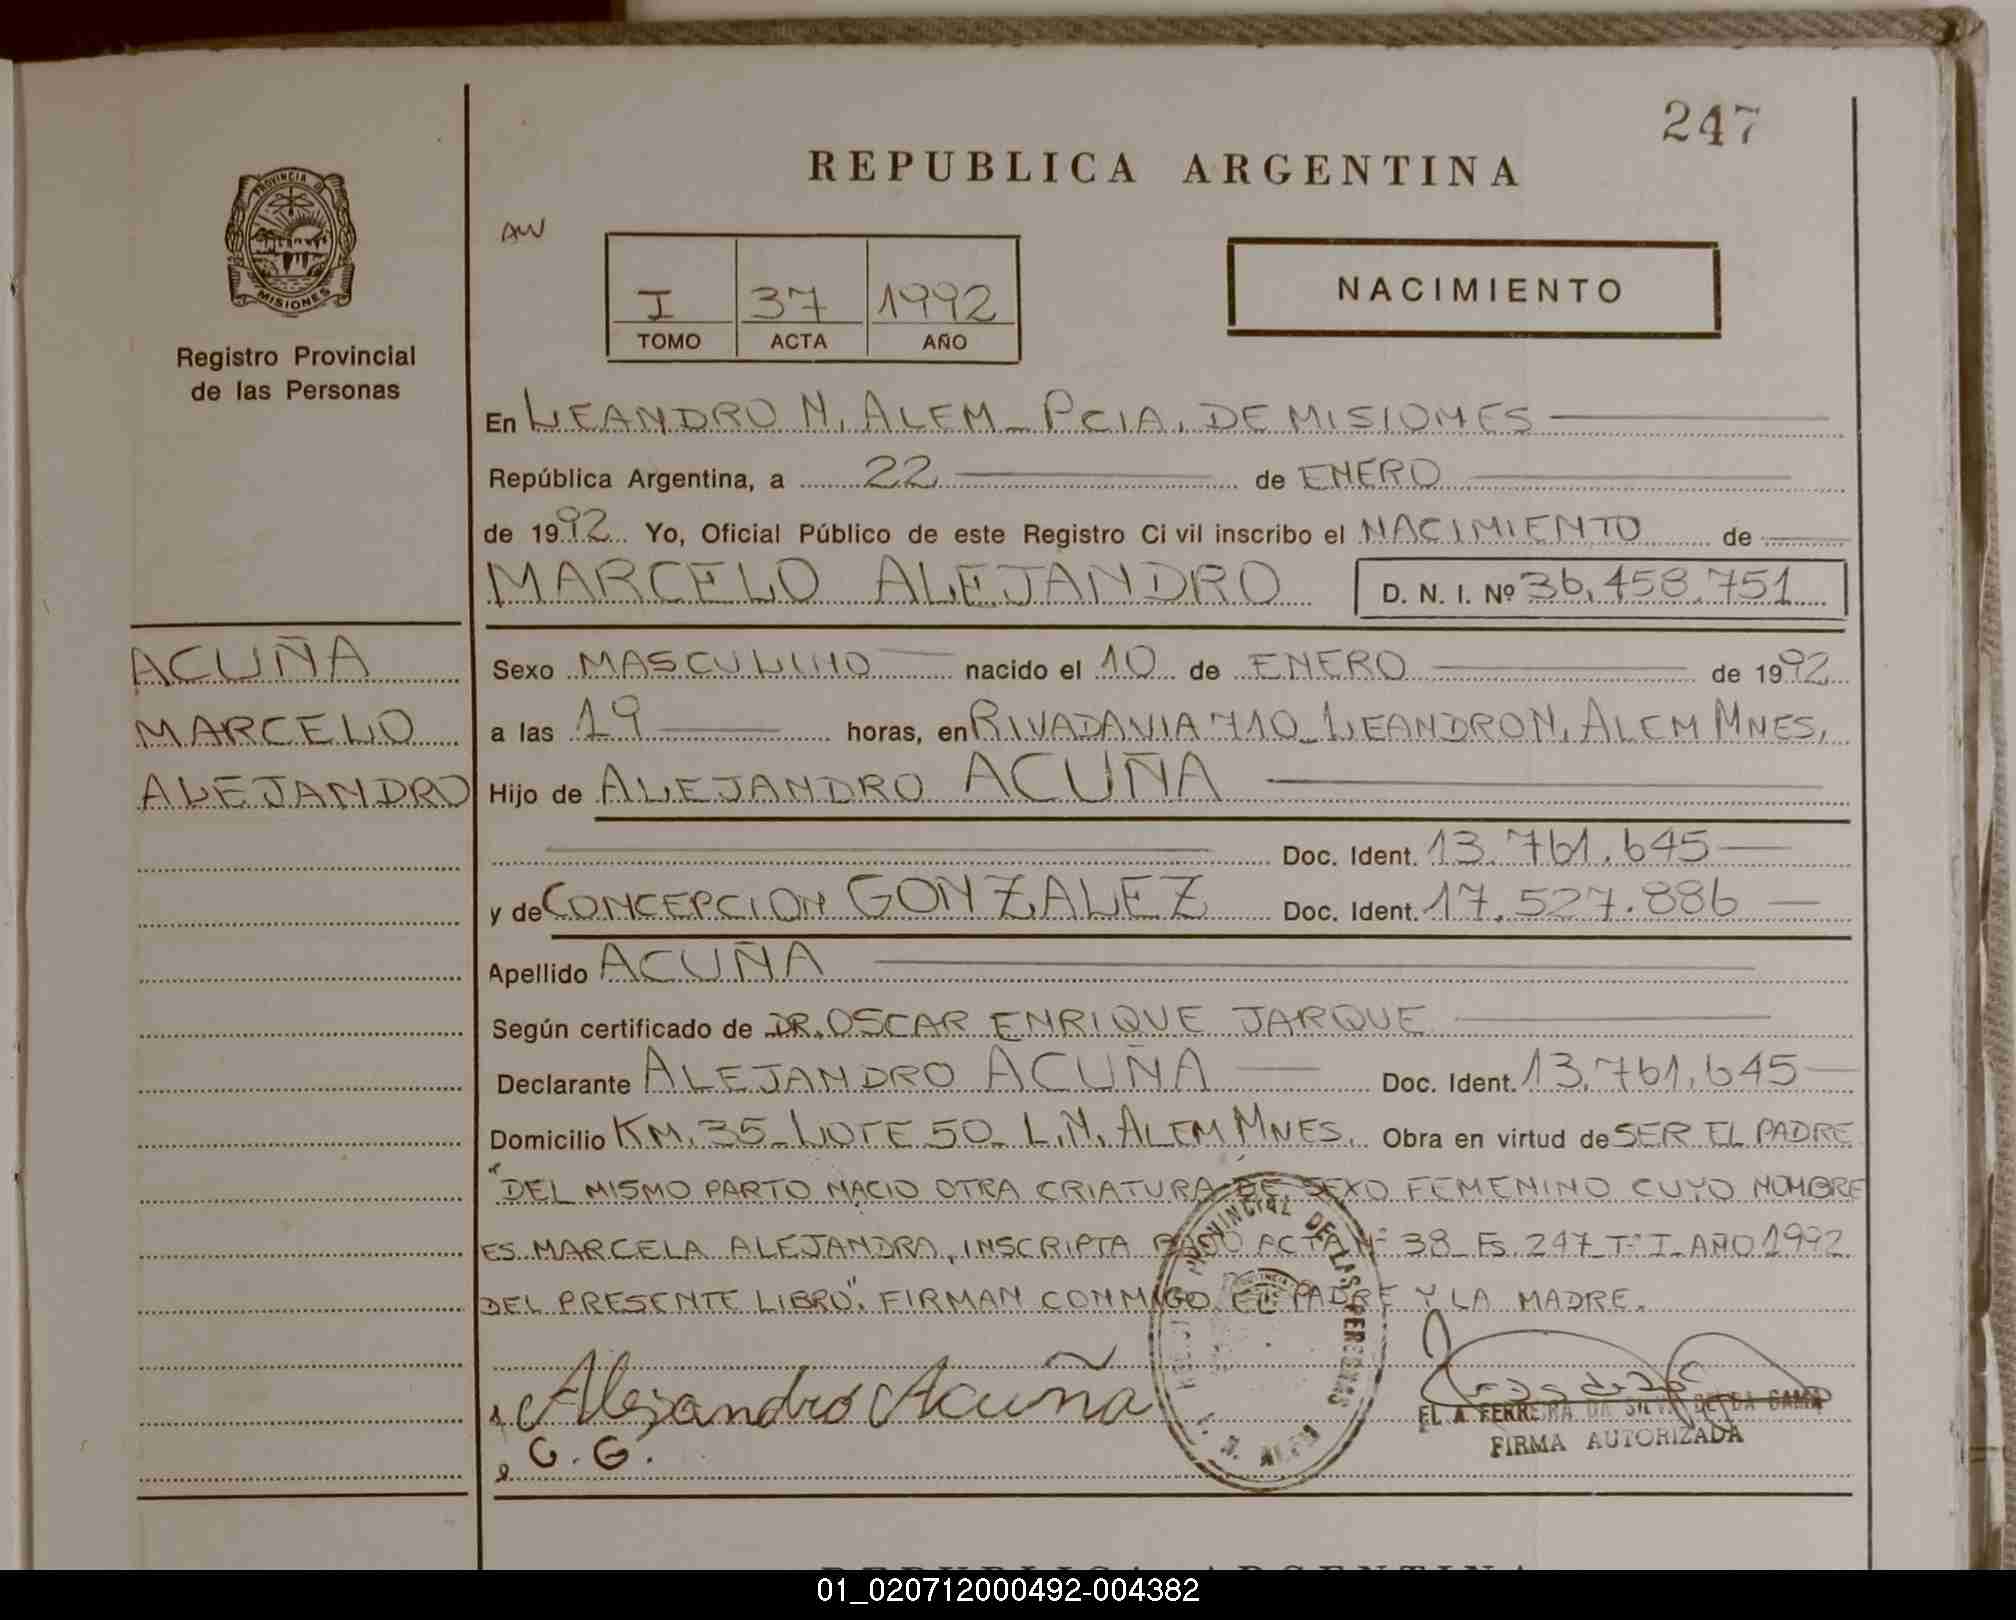 247
REPUBLICA ARGENTINA
PROVINCIA DE
MISIONES
Registro Provincial
de las Personas
AW
I 37 1992
TOMO ACTA AÑO
NACIMIENTO
En LEANDRO N. ALEM_ PCIA. DE MISIONES
República Argentina, a 22 de ENERO
de 1992 Yo, Oficial Público de este Registro Civil inscribo el NACIMIENTO de
MARCELO ALEJANDRO D. N. I. Nº 36.458.751
ACUÑA
MARCELO
ALEJANDRO
Sexo MASCULINO nacido el 10 de ENERO de 1992
a las 19 horas, en RIVADAVIA 710_ LEANDRO N. ALEM MNES.
Hijo de ALEJANDRO ACUÑA
Doc. Ident. 13.761.645
y de CONCEPCION GONZALEZ Doc. Ident. 17.527.886
Apellido ACUÑA
Según certificado de DR. OSCAR ENRIQUE JARQUE
Declarante ALEJANDRO ACUÑA Doc. Ident. 13.761.645
Domicilio KM. 35_ LOTE 50_ L.N. ALEM MNES. Obra en virtud de SER EL PADRE
"DEL MISMO PARTO NACIO OTRA CRIATURA DE SEXO FEMENINO CUYO NOMBRE
ES MARCELA ALEJANDRA, INSCRIPTA BAJO ACTA Nº 38_ Fs. 247_ Tº I_ AÑO 1992
DEL PRESENTE LIBRO". FIRMAN CONMIGO EL PADRE Y LA MADRE.
PROVINCIAL DE LAS PERSONAS
L. N. ALEM
Alejandro Acuña
C. G.
EL A. FERREIRA DA SILVA DE DA GAMA
FIRMA AUTORIZADA
REPUBLICA ARGENTINA
01_020712000492-004382